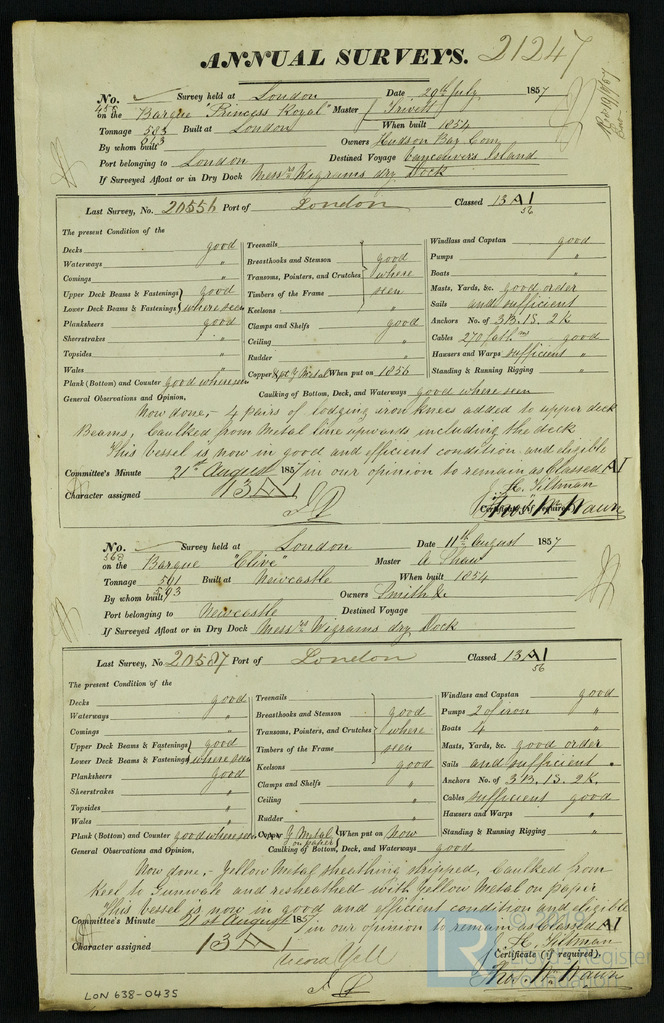 ANNUAL SURVEYS. 21247
No. 458 Survey held at London Date 29th July 1857
on the Barque "Princess Royal" Master J Trivett
Tonnage 583 Built at London When built 1854
By whom built Owners Hudson Bay Com
Port belonging to London Destined Voyage Vancouvers Island
If Surveyed Afloat or in Dry Dock Messrs Wigrams dry Dock
Last Survey, No. 20556 Port of London Classed 13 A 1
56
The present Condition of the
Decks good
Waterways "
Comings "
Upper Deck Beams & Fastenings good
Lower Deck Beams & Fastenings where seen
Planksheers good
Sheerstrakes "
Topsides "
Wales "
Plank (Bottom) and Counter good where seen
Treenails
Breasthooks and Stemson good
Transoms, Pointers, and Crutches where
Timbers of the Frame seen
Keelsons "
Clamps and Shelfs good
Ceiling "
Rudder "
Copper Y Metal When put on 1856
Windlass and Capstan good
Pumps "
Boats "
Masts, Yards, &c. good order
Sails and sufficient
Anchors No. of 3B. 1S. 2K
Cables 270 fathm good
Hawsers and Warps sufficient "
Standing & Running Rigging "
General Observations and Opinion, Caulking of Bottom, Deck, and Waterways good where seen
Now done,- 4 pairs of lodging iron knees added to upper deck
Beams, Caulked from Metal line upwards including the deck
This Vessel is now in good and efficient condition and eligible
Committee's Minute 21st August 1857 in our opinion to remain as Classed A1
Character assigned 13 A 1
J. H. Tiltman
Certificate (if required),
No. 560 Survey held at London Date 11th August 1857
on the Barque "Clive" Master A Shaw
Tonnage 561 Built at Newcastle When built 1854
By whom built 593 Owners Smith &c
Port belonging to Newcastle Destined Voyage
If Surveyed Afloat or in Dry Dock Messrs Wigrams dry Dock
Last Survey, No. 20587 Port of London Classed 13 A 1
56
The present Condition of the
Decks good
Waterways "
Comings "
Upper Deck Beams & Fastenings good
Lower Deck Beams & Fastenings where seen
Planksheers good
Sheerstrakes "
Topsides "
Wales "
Plank (Bottom) and Counter good where seen
Treenails
Breasthooks and Stemson good
Transoms, Pointers, and Crutches where
Timbers of the Frame seen
Keelsons good
Clamps and Shelfs "
Ceiling "
Rudder "
Copper Y Metal on paper When put on now
Windlass and Capstan good
Pumps 2 of iron "
Boats 4 "
Masts, Yards, &c. good order
Sails and sufficient
Anchors No. of 3B. 1S. 2K.
Cables sufficient good
Hawsers and Warps "
Standing & Running Rigging "
General Observations and Opinion, Caulking of Bottom, Deck, and Waterways good
Now done,- Yellow Metal sheathing stripped, Caulked from
Keel to Gunwale and resheathed with Yellow Metal on paper
This Vessel is now in good and efficient condition and eligible
Committee's Minute 21st August 1857 in our opinion to remain as Classed A1
Character assigned 13 A 1
J. H. Tiltman
Certificate (if required),
LON 638-0435
LR © 2019
Lloyd's Register
Foundation